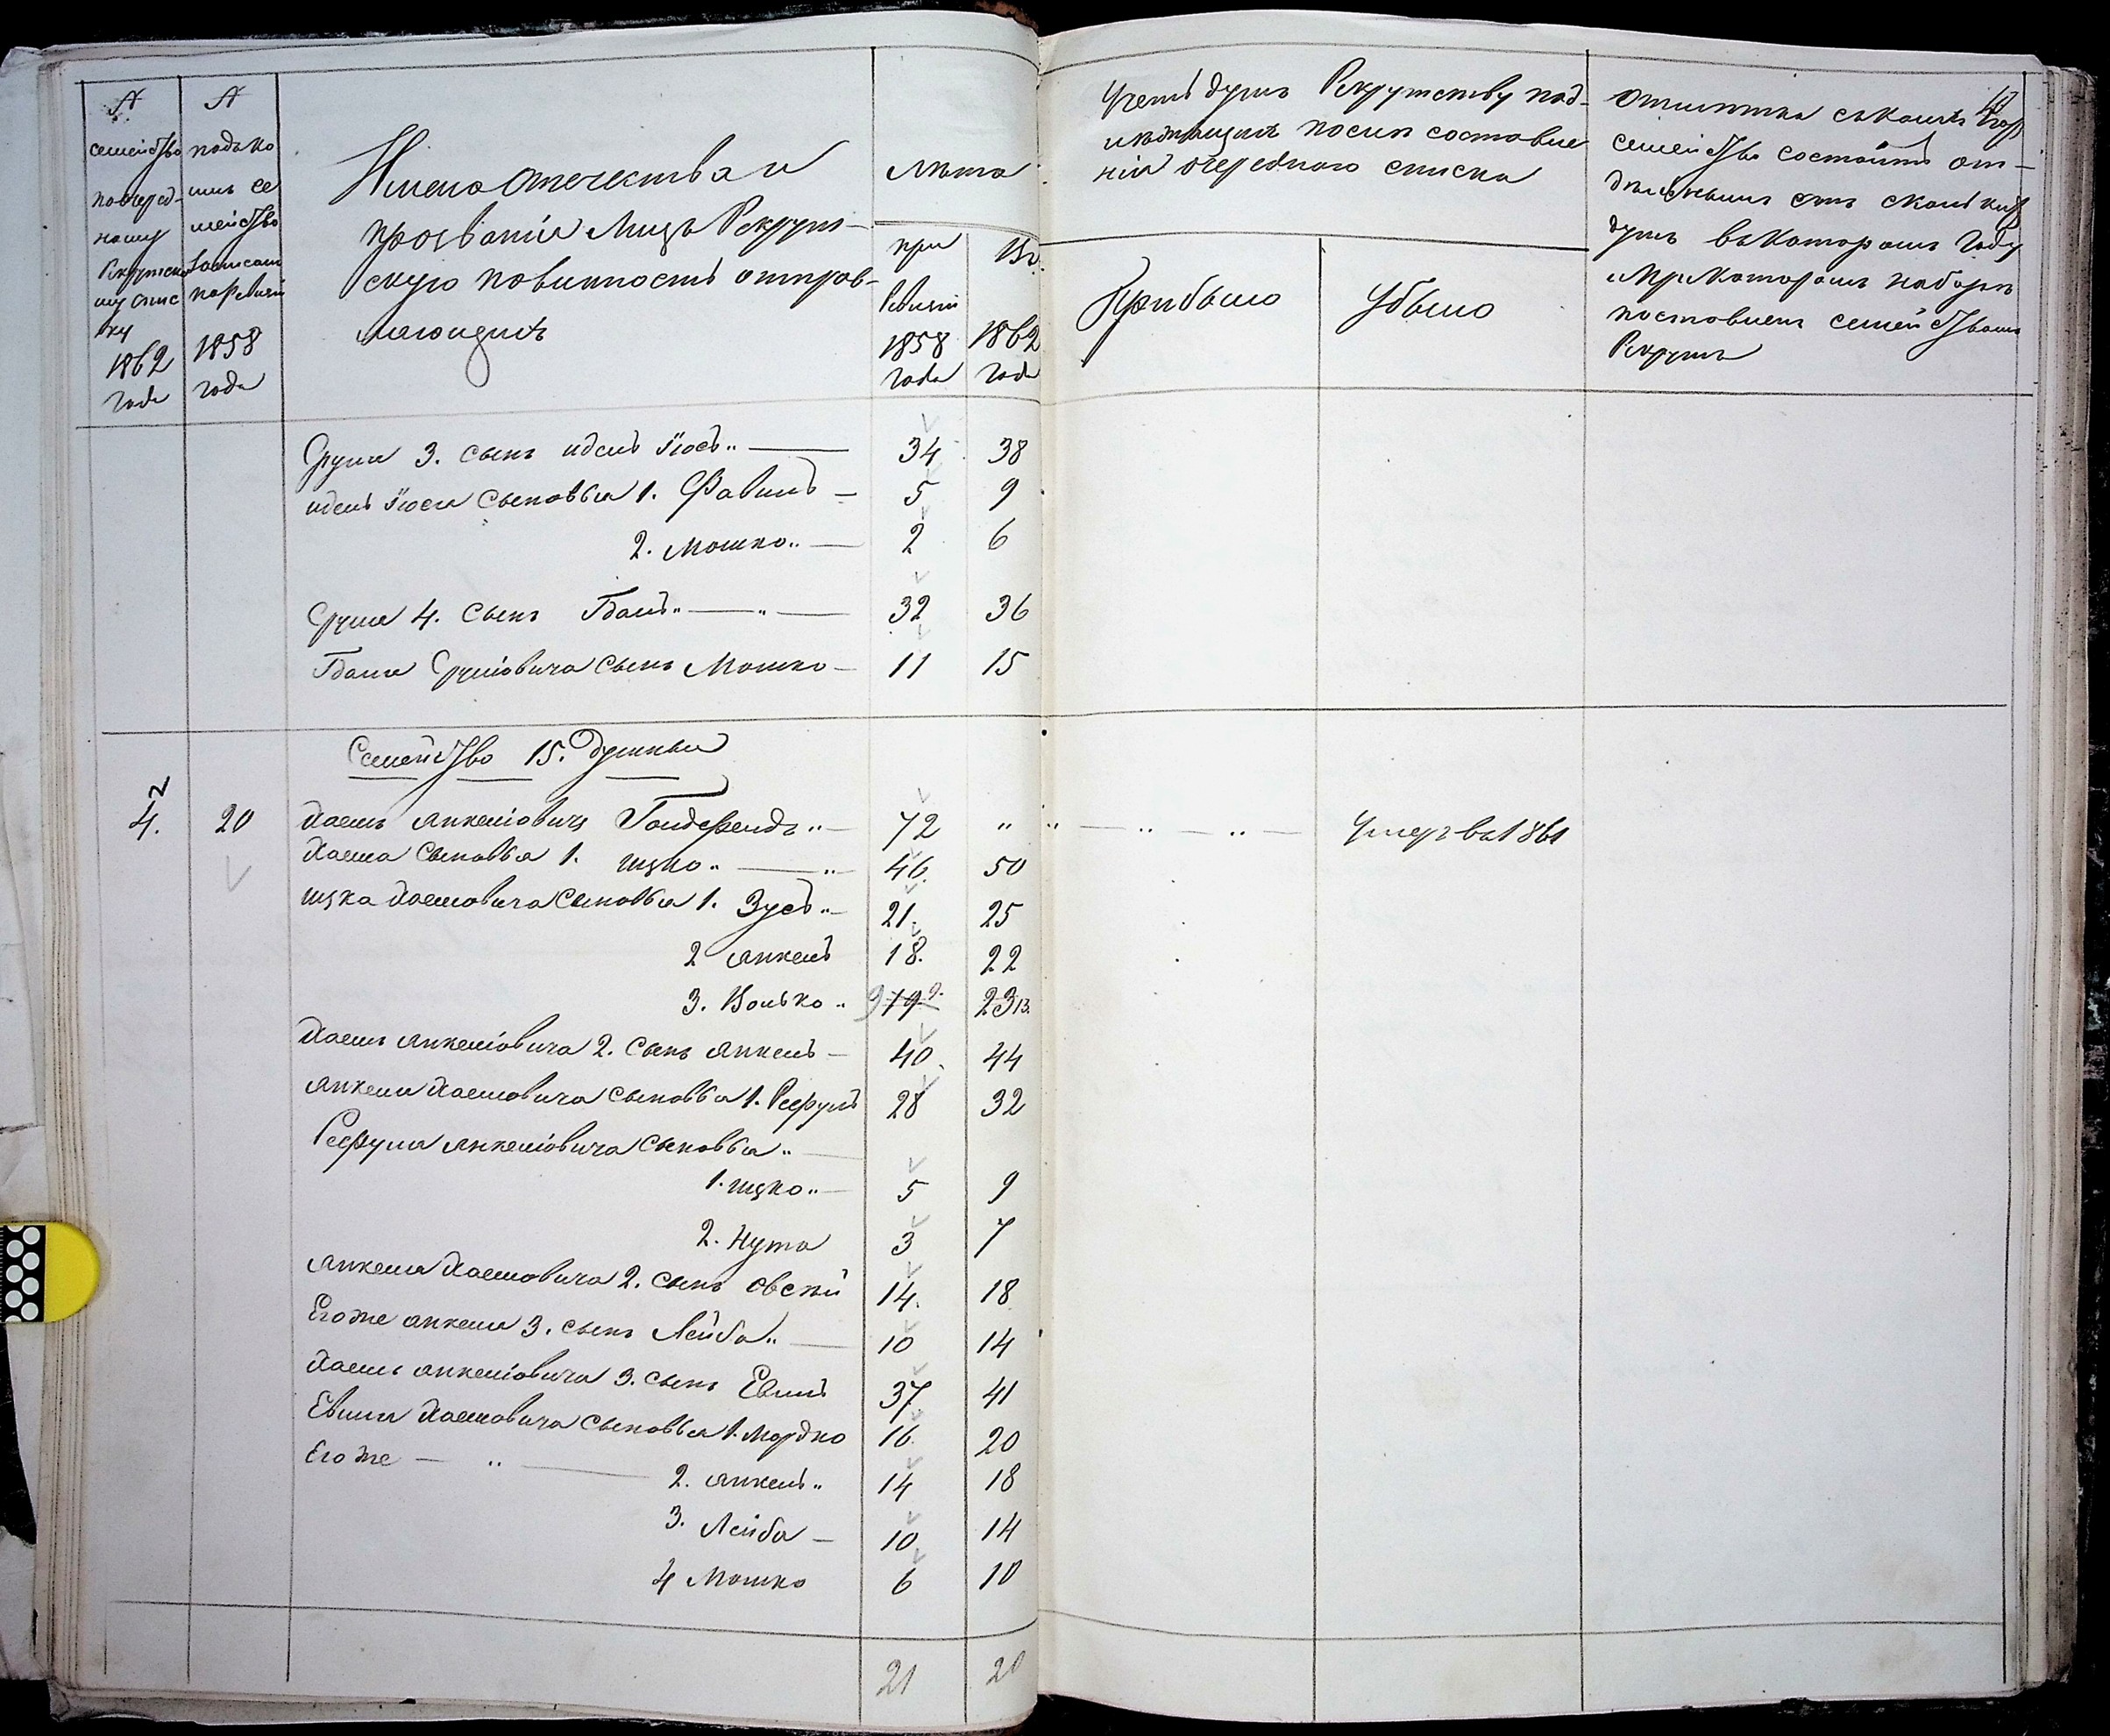 №
семейства
по очеред-
ному
Рекрутско
му спис
ку
1862
года
№
подъ ко
имъ се
мейство
записано
по ревизіи
1858
года
Имена отечества и
прозванія лицъ Рекрут-
скую повинность отправ-
ляющихъ
Лѣта
при
Ревизіи
1858
года
Въ
1862
года
Учетъ душъ Рекрутству под-
лежащихъ послѣ составле
нія очереднаго списка
Прибыло
Убыло
Отмѣтка съ какихъ поръ
семейство состоитъ от-
дѣльнымъ изъ сколькихъ
душъ въ которомъ году
и при которомъ наборѣ
поставленъ семействомъ
Рекрутъ
Сруля 3. сынъ Идель Іось „ — 34 38
Идель Іося сыновья 1. Файвишъ — 5 9
2. Мошко „ — 2 6
Сруля 4. сынъ „ — „ — 32 36
Срулiовича сынъ Мошко — 11 15
Семейство 15. душныя
4. 20 Хаимъ Янкеліовичъ „ — 72 „ „ — „ — „ — Умеръ въ 1861
Хаима сыновья 1. Ицко „ — „ 46. 50
Ицка Хаимовича сыновья 1. Зусь „ — 21. 25
2 Янкель 18. 22
3. Волько „ 9 19 9. 23 13.
Хаимъ Янкеліовича 2. сынъ Янкель — 40. 44
Янкеля Хаимовича сыновья 1. Рефуль 28 32
Рефуля Янкеліовича сыновья „ —
1. Ицко „ — 5 9
2. Нута 3 7
Янкеля Хаимовича 2. сынъ Овсій 14. 18
Егоже Янкеля 3. сынъ Лейба „ — 10 14
Хаимъ Янкеліовича 3. сынъ Евель 37 41
Евеля Хаимовича сыновья 1. Мордко 16. 20
Егоже — „ — 2. Янкель „ 14 18
3. Лейба — 10 14
4 Мошко 6 10
21 20